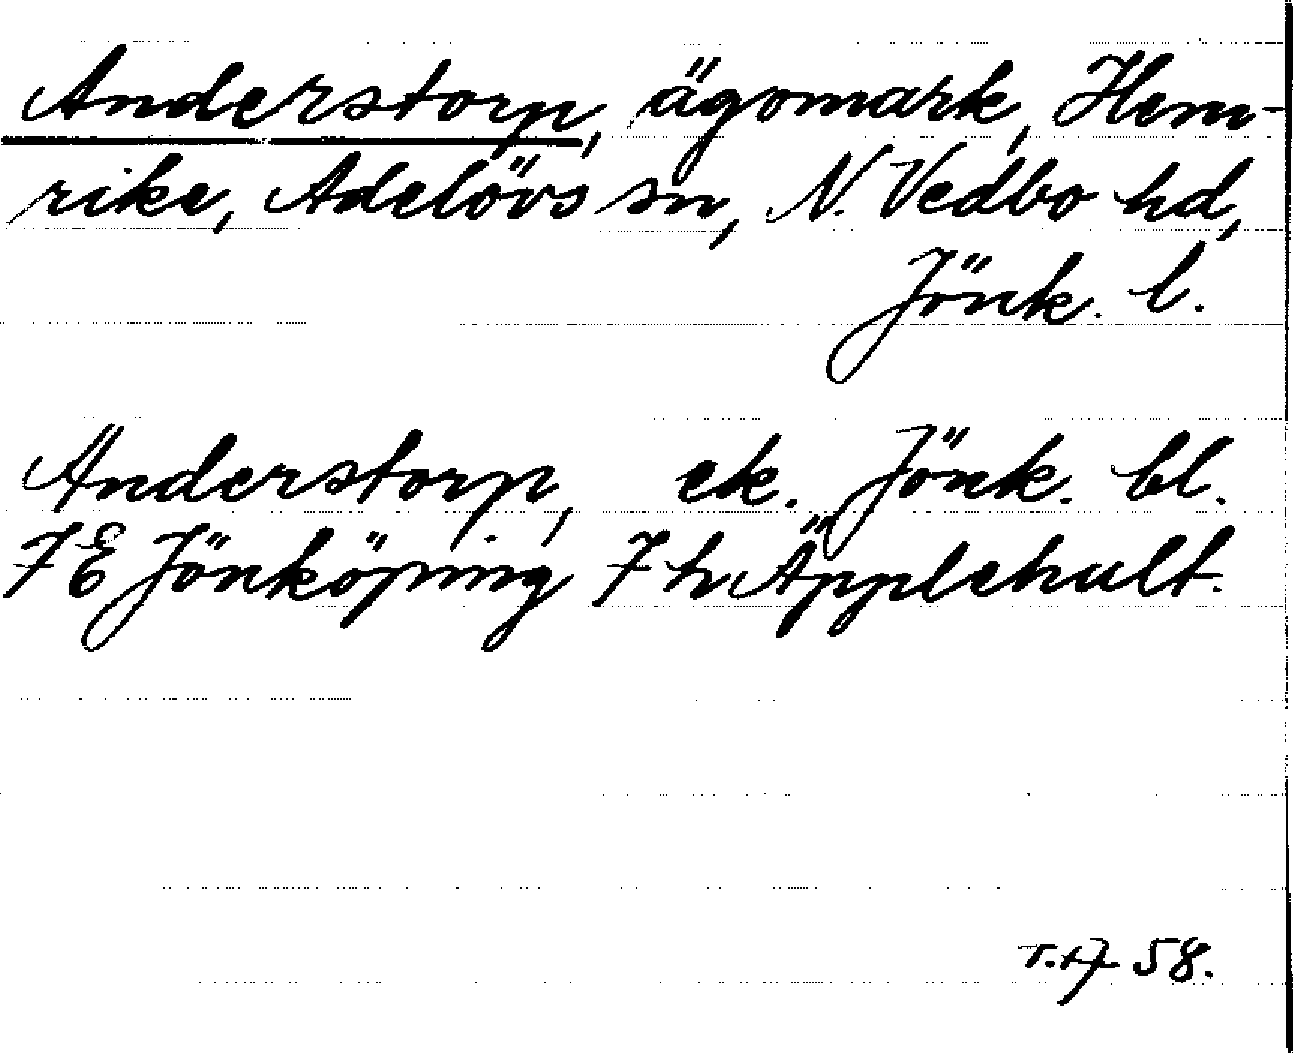 Anderstorp, ägomark, Hem-
rike, Adelövs sn, N. Vedbo hd,
Jönk. l.
Anderstorp, ek. Jönk. bl.
7 E Jönköping 7 h Äpplehult.
58.